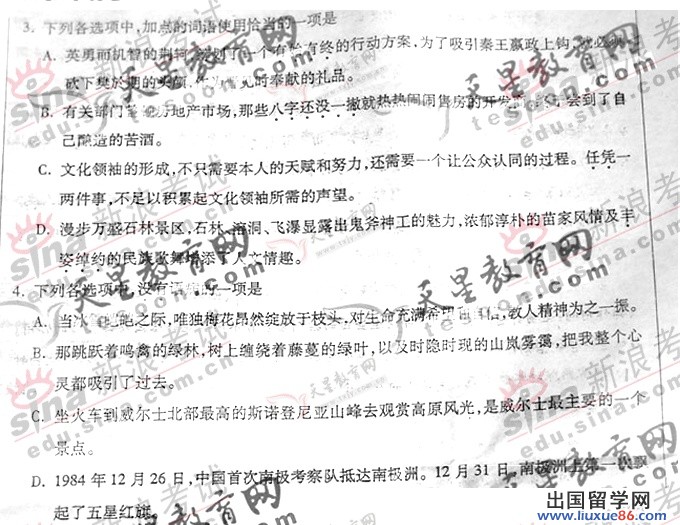 3. 下列各选项中,加点的词语使用恰当的一项是
A. 英勇而机智的荆轲 了一个有始有终的行动方案,为了吸引秦王嬴政上钩,
砍下樊於期的头颅, 的奉献的礼品。
B. 有关部门 地产市场,那些八字还没一撇就热热闹闹售房的开发 尝到了自
己酿造的苦酒。
C. 文化领袖的形成,不只需要本人的天赋和努力,还需要一个让公众认同的过程。任凭一
两件事,不足以积累起文化领袖所需的声望。
D. 漫步万盛石林景区,石林、溶洞、飞瀑显露出鬼斧神工的魅力,浓郁淳朴的苗家风情及丰
姿绰约的民族歌舞增添了人文情趣。
4. 下列各选项中,没有语病的一项是
A. 当 之际,唯独梅花昂然绽放于枝头,对生命充满希望 ,教人精神为之一振。
B. 那跳跃着鸣禽的绿林,树上缠绕着藤蔓的绿叶,以及时隐时现的山岚雾霭,把我整个心
灵都吸引了过去。
C. 坐火车到威尔士北部最高的斯诺登尼亚山峰去观赏高原风光,是威尔士最主要的一个
景点。
D. 1984年12月26日,中国首次南极考察队抵达南极洲。12月31日,南极洲上第一次飘
起了五星红旗。
天星教育网
tesoon.com
sina 新浪考试
edu.sina.com.cn
出国留学网
www.liuxue86.com